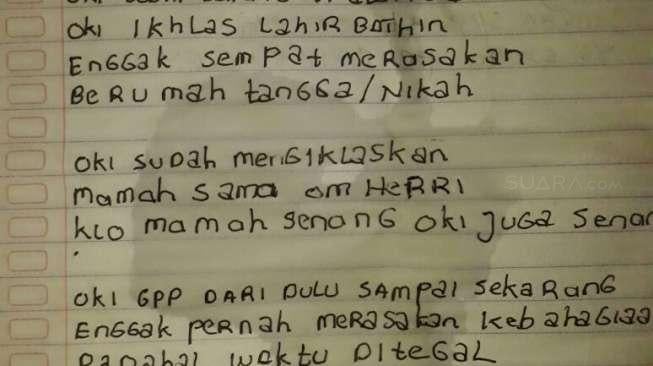 OKI IKHLAS LAHIR BATHIN
ENGGAK SEMPAT MERASAKAN
BERUMAH TANGGA/NIKAH
OKI SUDAH MENGIKLASKAN
MAMAH SAMA OM HERRI
SUARA.com
KLO MAMAH SENANG OKI JUGA SENAN
OKI GPP DARI DULU SAMPAI SEKARANG
ENGGAK PERNAH MERASAKAN KEBAHAGIAA
PADAHAL WAKTU DITEGAL